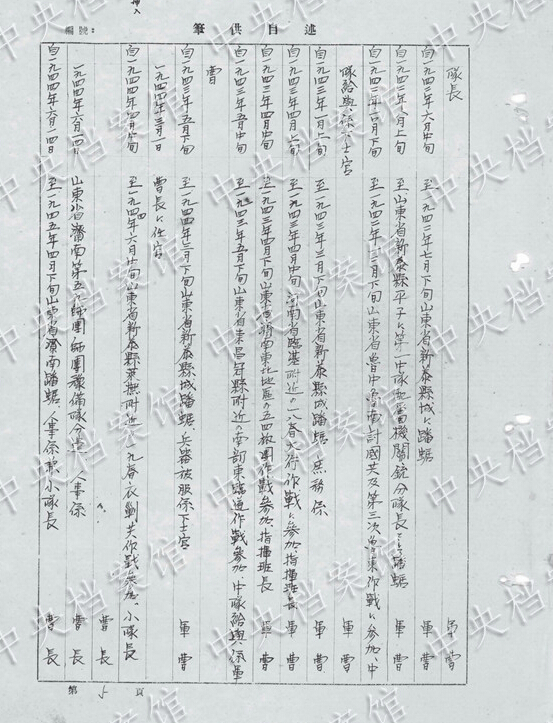 述自供筆
編號：
隊長 軍曹
自一九四二年六月中旬 至一九四二年七月下旬山東省新泰縣城ニ踏蹋 軍曹
自一九四二年八月上旬 至山東省新泰縣平子ニ第一中隊 重機関銃分隊長トシテ踏蹋 軍曹
自一九四二年 月下旬 至一九四二年十二月下旬山東省魯中 南討國共及第三次魯東作戰ニ参加、中
隊給與係下士官 軍曹
自一九四三年一月上旬 至一九四三年三月下旬山東省新泰縣城踏蹋 庶務係 軍曹
自一九四三年四月上旬 至一九四三年四月中旬河南省臨淇附近ノ一八春太行作戰ニ参加、指揮班長 軍曹
自一九四三年四月中旬 至一九四三年四月下旬山東省 南東北地區ノ五四旅團作戰参加、指揮班長 軍曹
自一九四三年五月中旬 至一九四三年五月下旬山東省東 縣附近ノ南部東臨道作戰参加、中隊給與係軍
曹
自一九四三年五月下旬 至一九四四年三月下旬山東省新泰縣城踏蹋 兵器被服係下士官 軍曹
一九四四年三月一日 曹長ニ任官
自一九四四年四月中旬 至一九四四年六月中旬山東省新泰縣萊蕪附近ノ一九春衣剿共作戰参加、小隊長 曹長
一九四四年六月一四日 山東省濟南第五九師團師團 備隊分遣、人事係 曹長
自一九四四年六月一四日 至一九四五年四月下旬山東省濟南踏蹋、人事係 小隊長 曹長
第 5 頁
中央档案馆